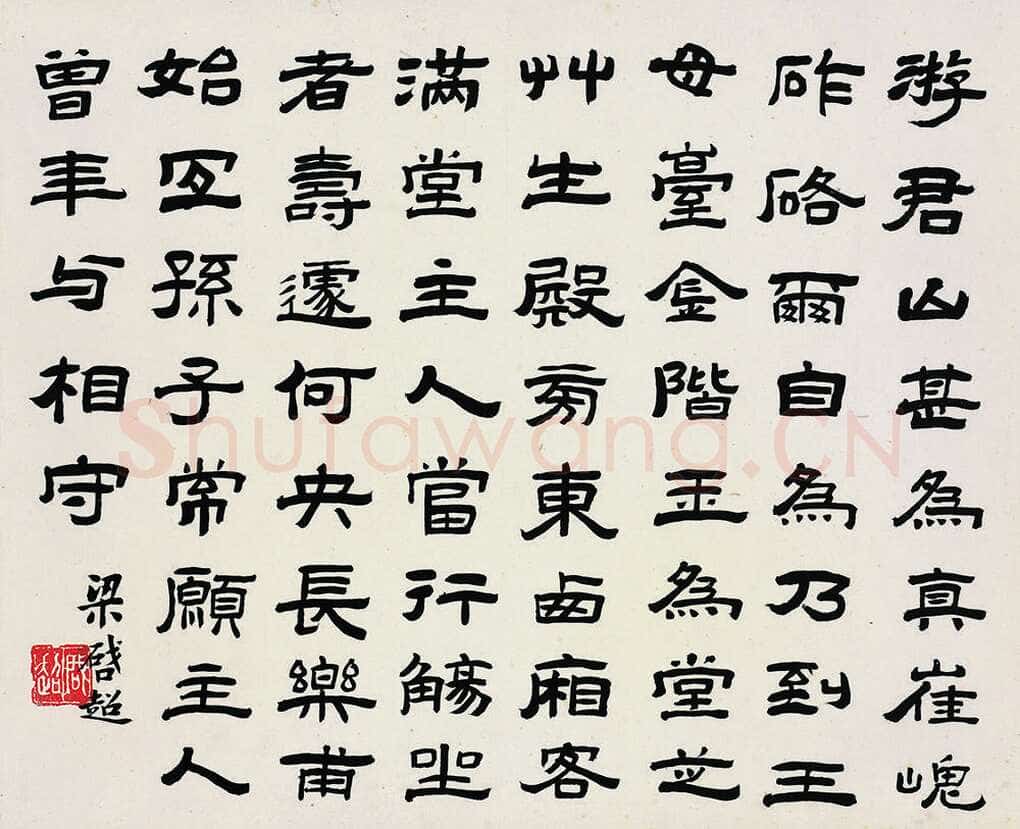 游君山甚為真崔嵬
砟硌爾自為乃到王
母臺金階玉為堂芝
艸生殿旁東西廂客
滿堂主人當行觴坐
者壽遽何央長樂甫
始宜孫子常願主人
曾年与相守
梁啟超
Shufawang.CN